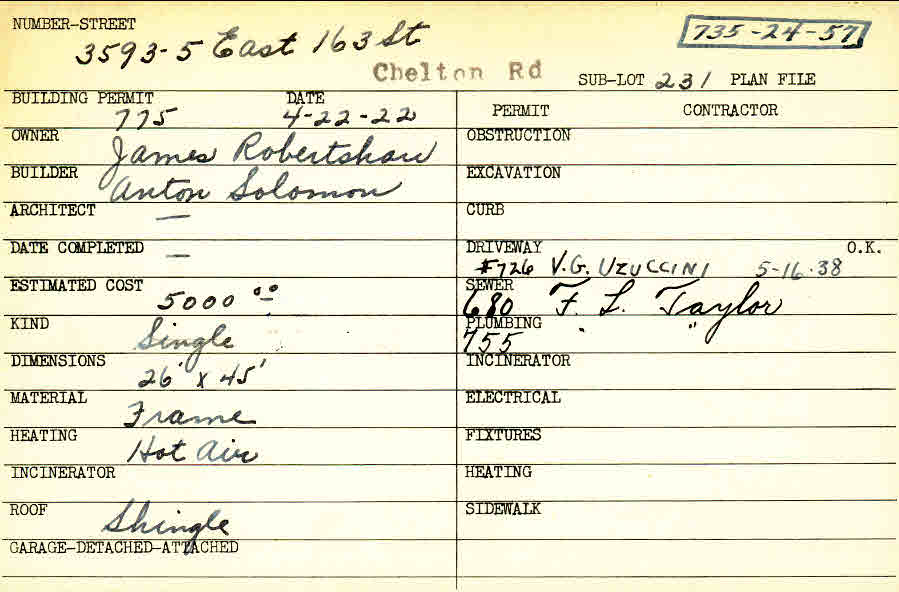 NUMBER-STREET
3593-5 East 163 St
735-24-57
Chelton Rd
SUB-LOT 231 PLAN FILE
BUILDING PERMIT DATE
775 4-22-22
PERMIT CONTRACTOR
OWNER James Robertshaw
OBSTRUCTION
BUILDER Anton Solomon
EXCAVATION
ARCHITECT —
CURB
DATE COMPLETED —
DRIVEWAY O.K.
#726 V.G. UZUCCINI 5-16-38
ESTIMATED COST 5000 00
SEWER
680 F. L. Taylor
KIND Single
PLUMBING " "
755
DIMENSIONS 26' x 45'
INCINERATOR
MATERIAL Frame
ELECTRICAL
HEATING Hot Air
FIXTURES
INCINERATOR
HEATING
ROOF Shingle
SIDEWALK
GARAGE-DETACHED-ATTACHED